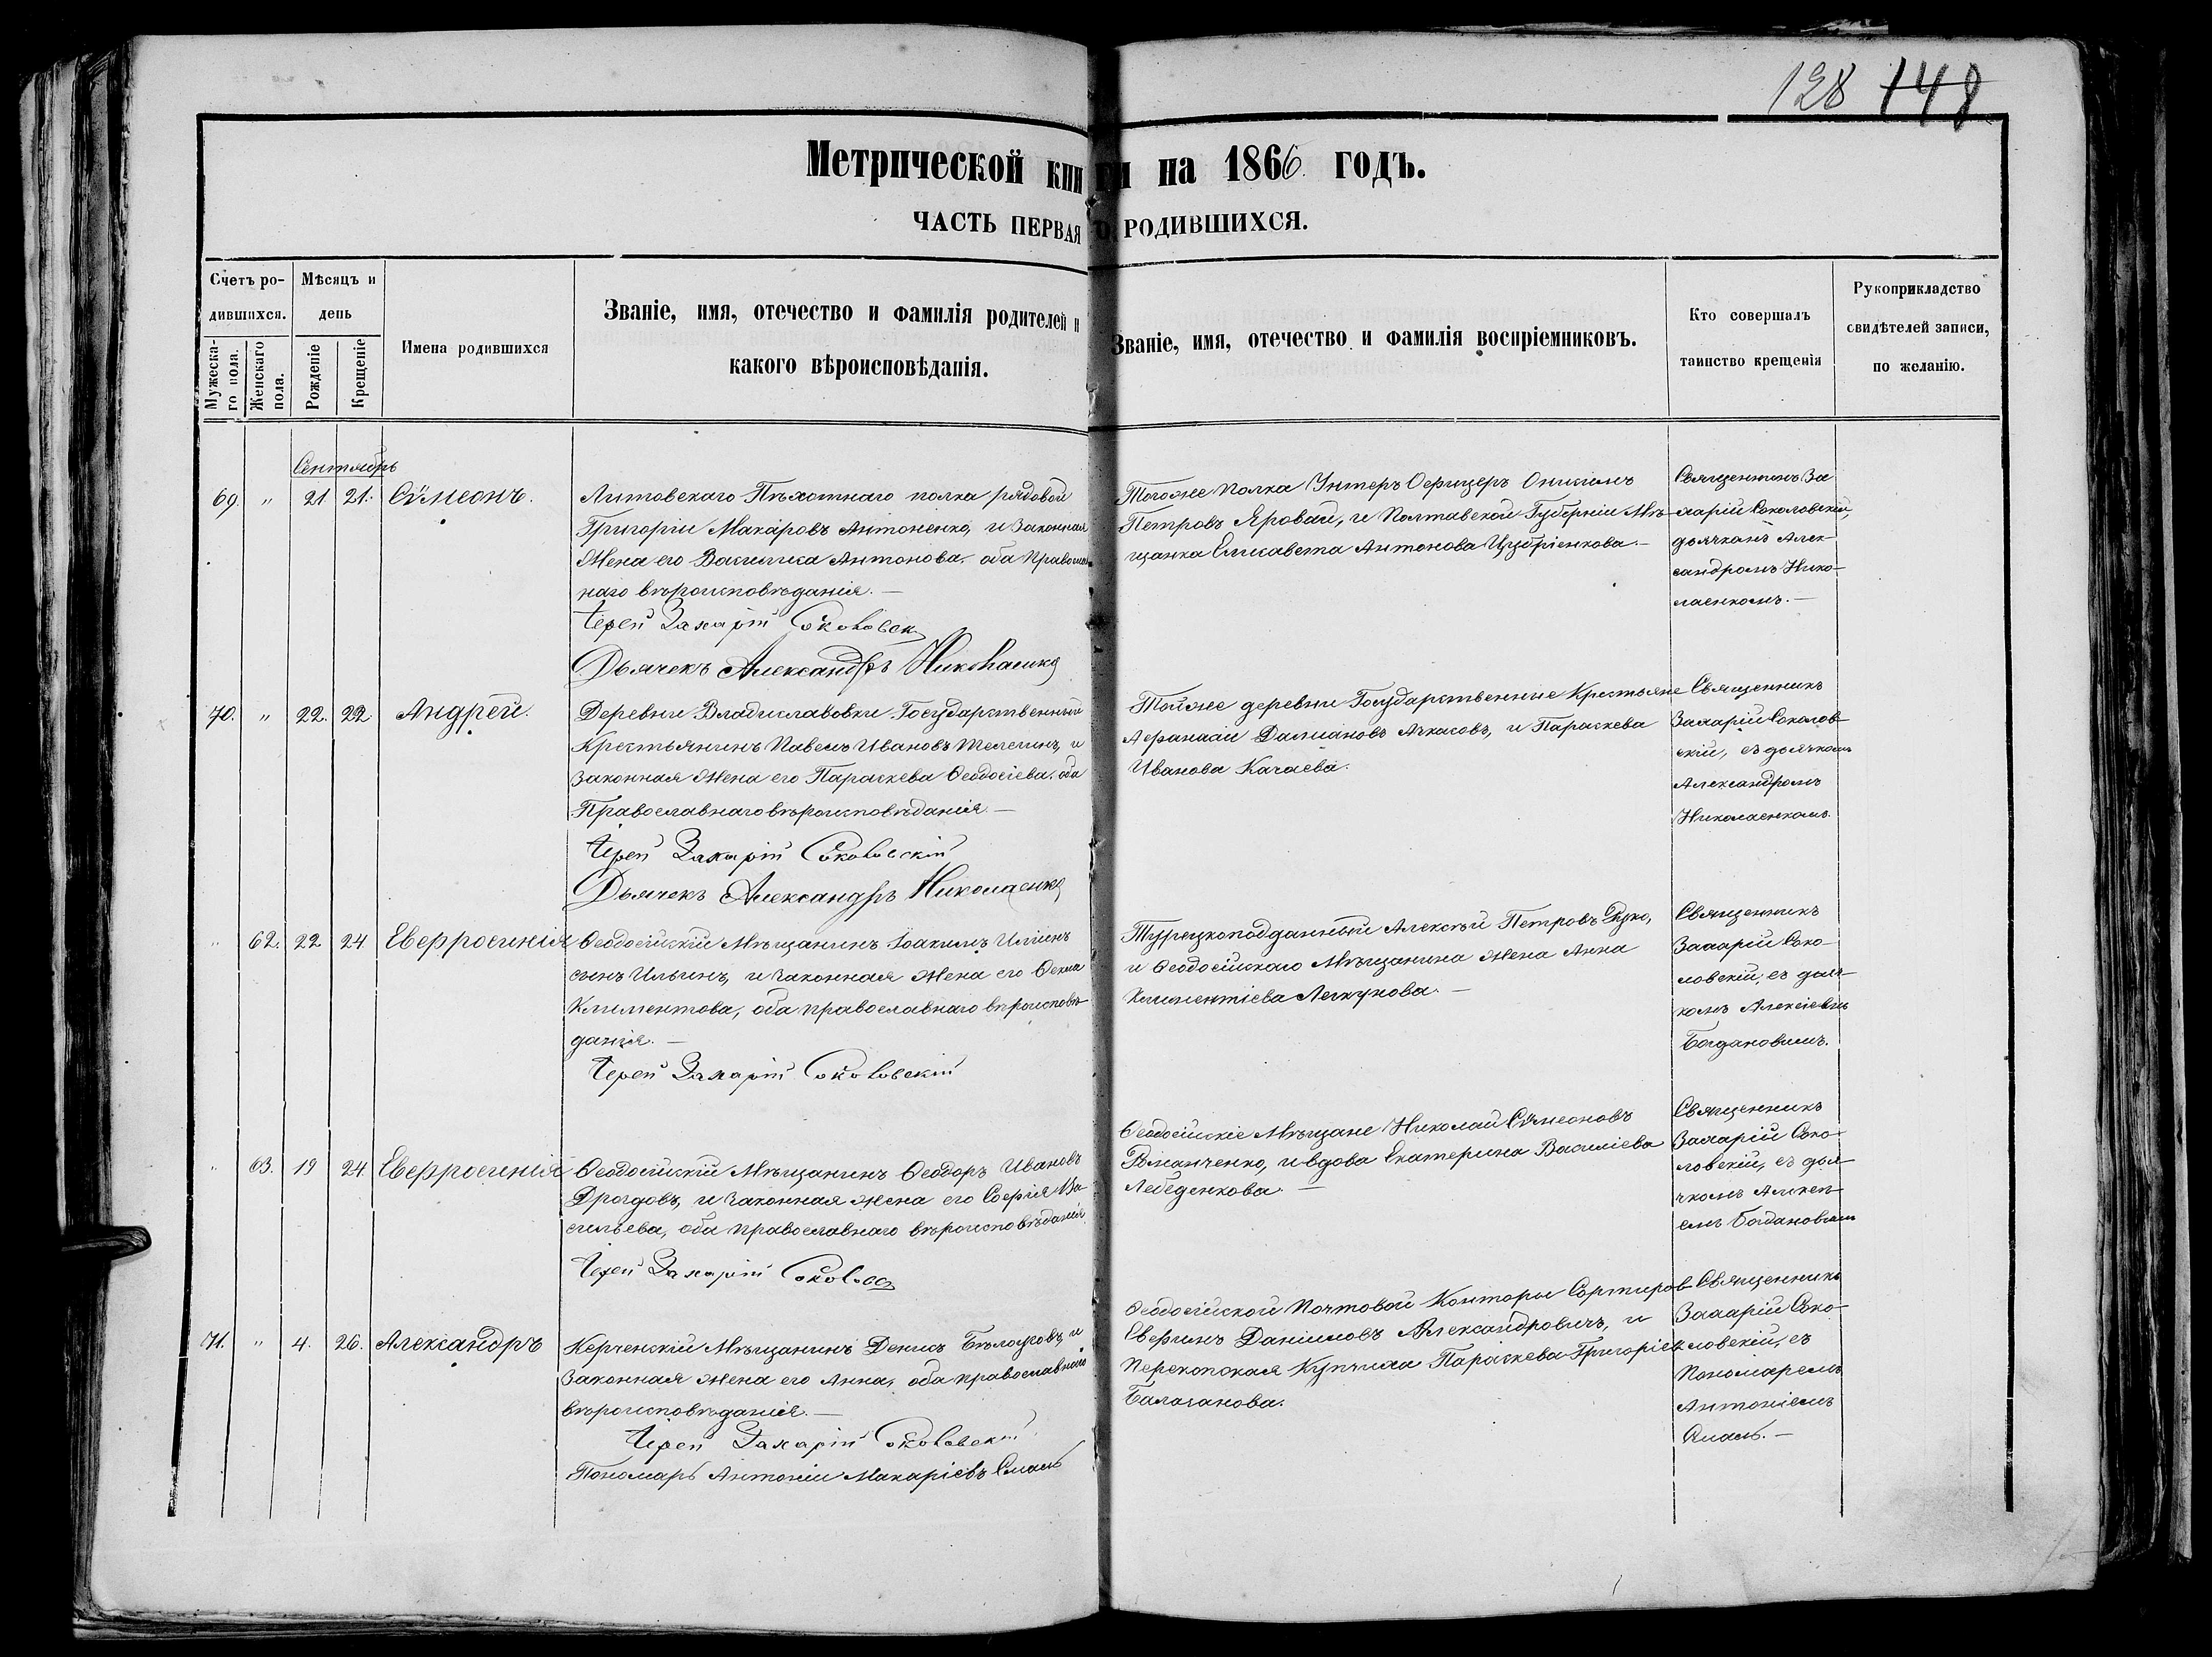 128 148
Метрической книги на 1866 годъ.
ЧАСТЬ ПЕРВАЯ О РОДИВШИХСЯ.
Счетъ ро-
дившихся.
Мужеска-
го пола.
Женскаго
пола.
Мѣсяцъ и
день
Рожденіе
Крещеніе
Имена родившихся
Званіе, имя, отечество и фамилія родителей и
какого вѣроисповѣданія.
Званіе, имя, отечество и фамилія воспріемниковъ.
Кто совершалъ
таинство крещенія
Рукоприкладство
свидѣтелей записи,
по желанію.
Сентябрь
69. " 21 21. Сѵмеонъ.
Литовскаго Пѣхотнаго полка рядовой
Григорій Макаровъ Антоненко, и Законная
Жена его Василиса Антонова. оба Православ-
наго вѣроисповѣданія. —
Іерей Захарій Соколовск
Дьячекъ Александръ Николаенко
Тогоже Полка Унтеръ Офицеръ
Петровъ Яровай, и Полтавской Губерніи Мѣ-
щанка Елисавета Антонова —
Священникъ За
харій Соколовскій,
дьячкомъ Алек-
сандромъ Нико-
лаенкомъ. —
70. " 22. 22 Андрей.
Деревни Владиславовки Государственный
Крестьянинъ Павелъ Ивановъ Телегинъ, и
законная Жена его Параскева Ѳеодосіева. оба
Православнаго вѣроисповѣданія. —
Іерей Захарій Соколовскій
Дьячекъ Александръ Николаенко
Тойже деревни Государственные Крестьяне
Афанасій и Параскева
Иванова Качаева.
Священникъ
Захарій Соколов-
скій, съ дьячкомъ
Александромъ
Николаенкомъ.
" 62. 22 24 Евфросинія
Ѳеодосійскій Мѣщанинъ Іоакимъ Иліинъ
сынъ Ильинъ, и законная Жена его Ѳекла
Климентова, оба православнаго вѣроисповѣ-
данія. —
Іерей Захарій Соколовскій
Турецкоподданный Алексѣй Петровъ
и Ѳеодосійскаго Мѣщанина Жена Анна
Климентіева —
Священникъ
Захарій Соко-
ловскій, съ дьяч-
комъ Алексіемъ
Богдановымъ.
" 63. 19 24 Евфросинія
Ѳеодосійскій Мѣщанинъ Ѳеодоръ Ивановъ
Дроздовъ, и законная жена его Софія Ва-
сильева, оба православнаго вѣроисповѣданія.
Іерей Захарій
Ѳеодосійскіе Мѣщане Николай Сѵмеоновъ
Романченко, и вдова Екатерина Василіева
Лебеденкова. —
Священникъ
Захарій Соко-
ловскій, съ дья-
чкомъ Алексѣ-
емъ Богдановымъ
71. " 4. 26. Александръ
Керченскій Мѣщанинъ Денисъ и
Законная жена его Анна, оба православнаго
вѣроисповѣданія. —
Іерей Захарій Соколовскій
Пономарь Антоній Макаріевъ
Ѳеодосійской Почтовой Конторы Сортиров
Даніиловъ Александровичъ, и
Перекопская Купчиха Параскева Григоріев
Балаганова.
Священникъ
Захарій Соко-
ловскій, съ
Пономаремъ
Антоніемъ